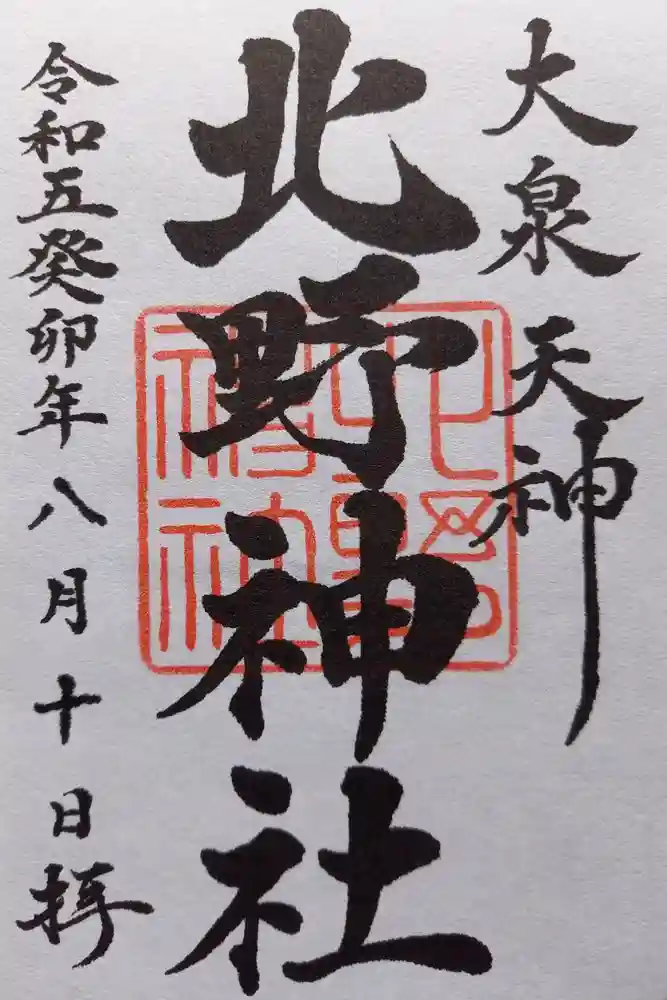 大泉天神
北野神社
令和五癸卯年八月十日拝